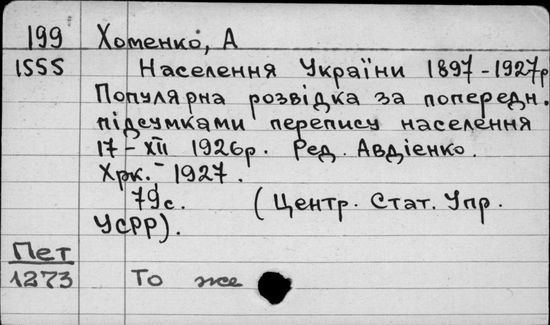 199 Хоменко, А
1555 Населення України 1897-1927р
Популярна розвідка за попередн.
підсумками перепису населення
17-XII 1926р. Ред. Авдієнко.
Хрк. 1927.
79с. (Центр. Стат. Упр.
УСРР).
Пет
1273 То же